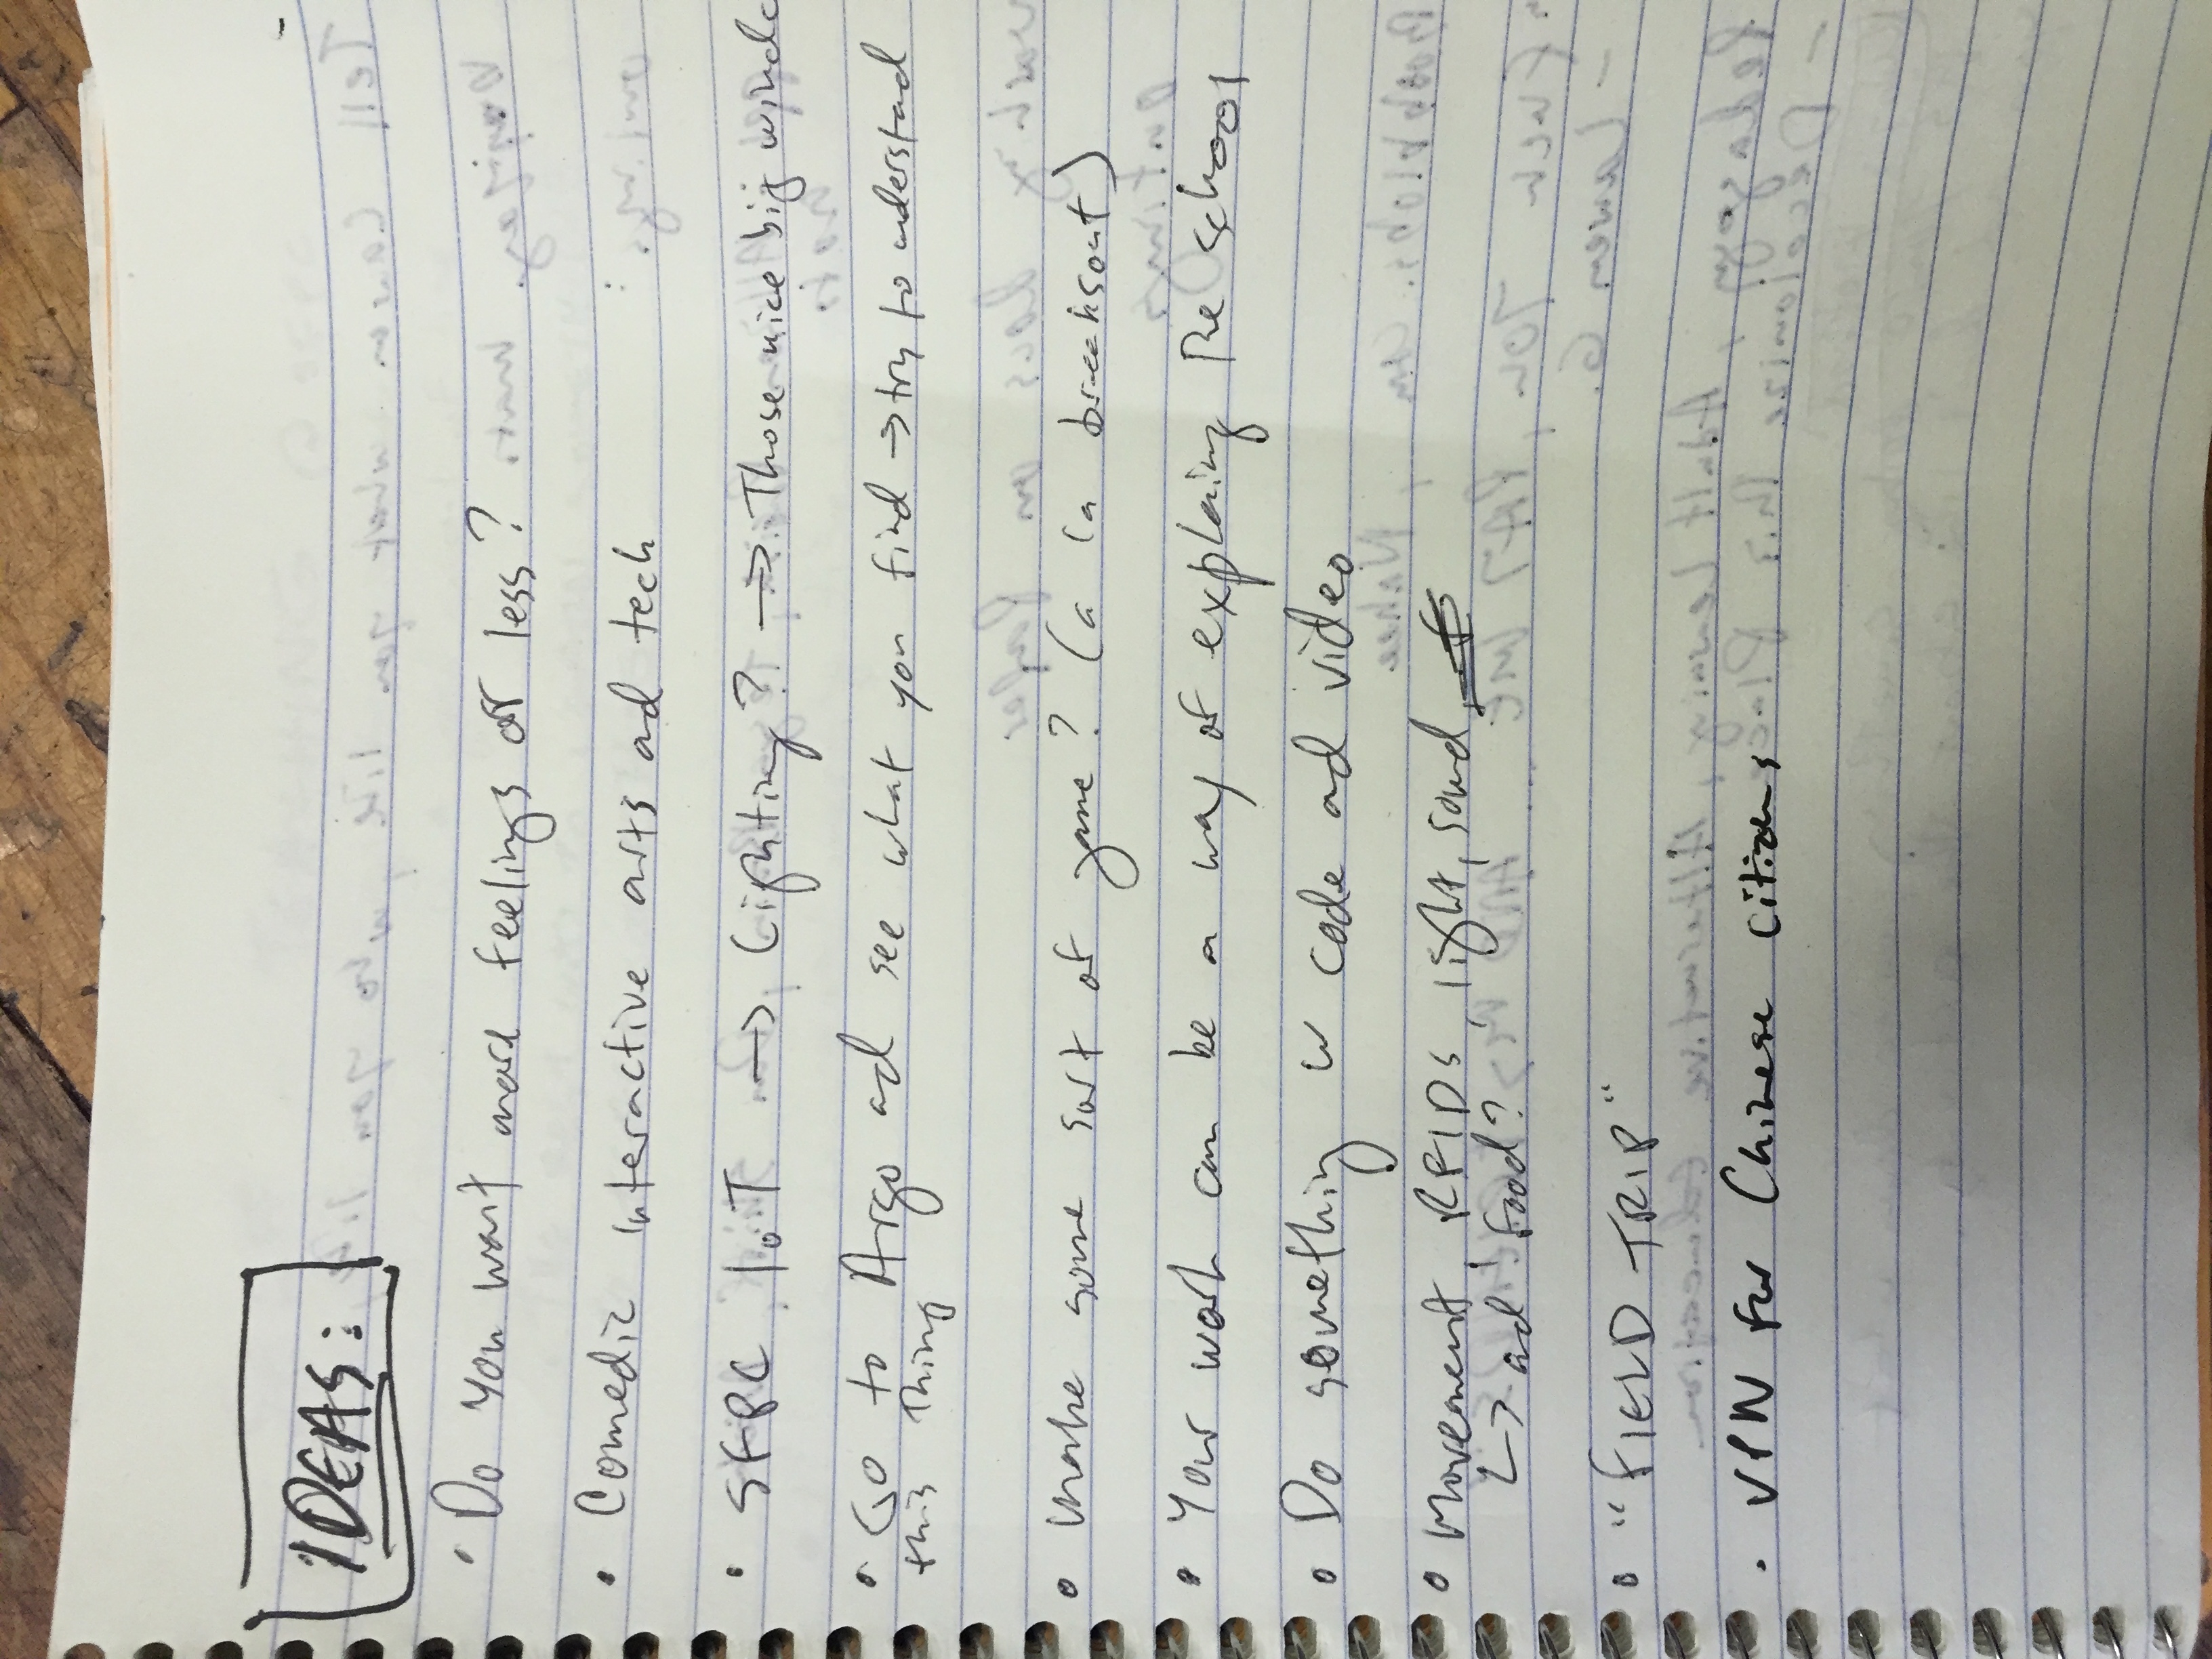 IDEAS:
• Do you want more feelings or less?
• Comedic interactive arts ad tech
• SFPC IoT → Lighting? → Those nice big windo
• Go to Argo ad see what you find → try to understad
this thing
• Make some sort of game? (a la breaksout)
• Your work can be a way of explaing the school
• Do something w code ad video
• Movement, RFIDs, light, sound,
↳ ad food?
• "FIELD TRIP"
• VPN for Chinese citizens